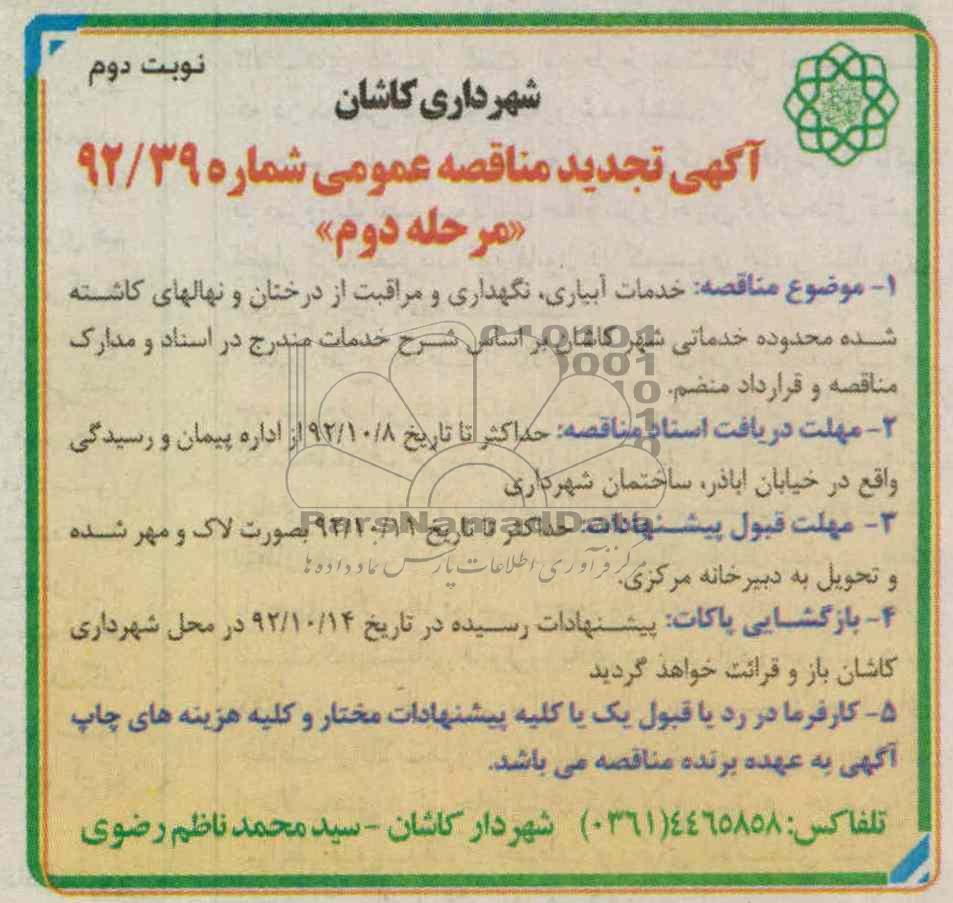 نوبت دوم
شهرداری کاشان
آگهی تجدید مناقصه عمومی شماره ۹۲/۳۹
«مرحله دوم»
۱- موضوع مناقصه: خدمات آبیاری، نگهداری و مراقبت از درختان و نهالهای کاشته
شده محدوده خدماتی شهر کاشان بر اساس شرح خدمات مندرج در اسناد و مدارک
مناقصه و قرارداد منضم.
۲- مهلت دریافت اسناد مناقصه: حداکثر تا تاریخ ۹۲/۱۰/۸ از اداره پیمان و رسیدگی
واقع در خیابان اباذر، ساختمان شهرداری
۳- مهلت قبول پیشنهادات: حداکثر تا تاریخ بصورت لاک و مهر شده
و تحویل به دبیرخانه مرکزی.
۴- بازگشایی پاکات: پیشنهادات رسیده در تاریخ ۹۲/۱۰/۱۴ در محل شهرداری
کاشان باز و قرائت خواهد گردید
۵- کارفرما در رد یا قبول یک یا کلیه پیشنهادات مختار و کلیه هزینه های چاپ
آگهی به عهده برنده مناقصه می باشد.
تلفاکس: ٤٤٦٥٨٥٨(٠٣٦١) شهردار کاشان - سید محمد ناظم رضوی
ParsNamadData
مرکز فرآوری اطلاعات پارس نماد داده ها